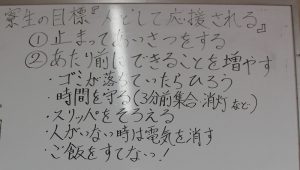 寮生の目標『人として応援される』
①止まってあいさつをする
②あたり前にできることを増やす
・ゴミが落ちていたらひろう
・時間を守る(3分前集合・消灯など)
・スリッパをそろえる
・人がいない時は電気を消す
・ご飯をすてない!